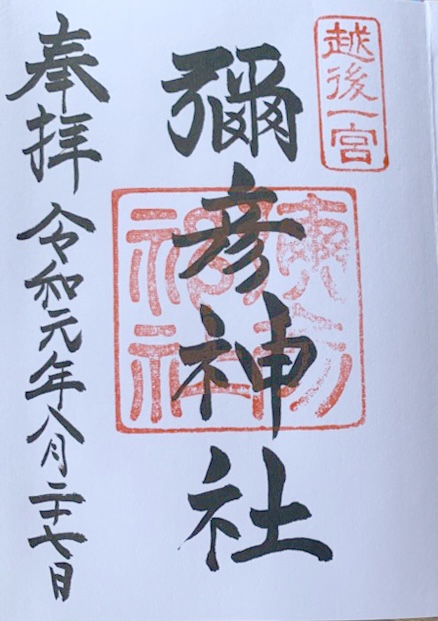 越後一宮
彌彦神社
奉拝 令和元年八月二十七日